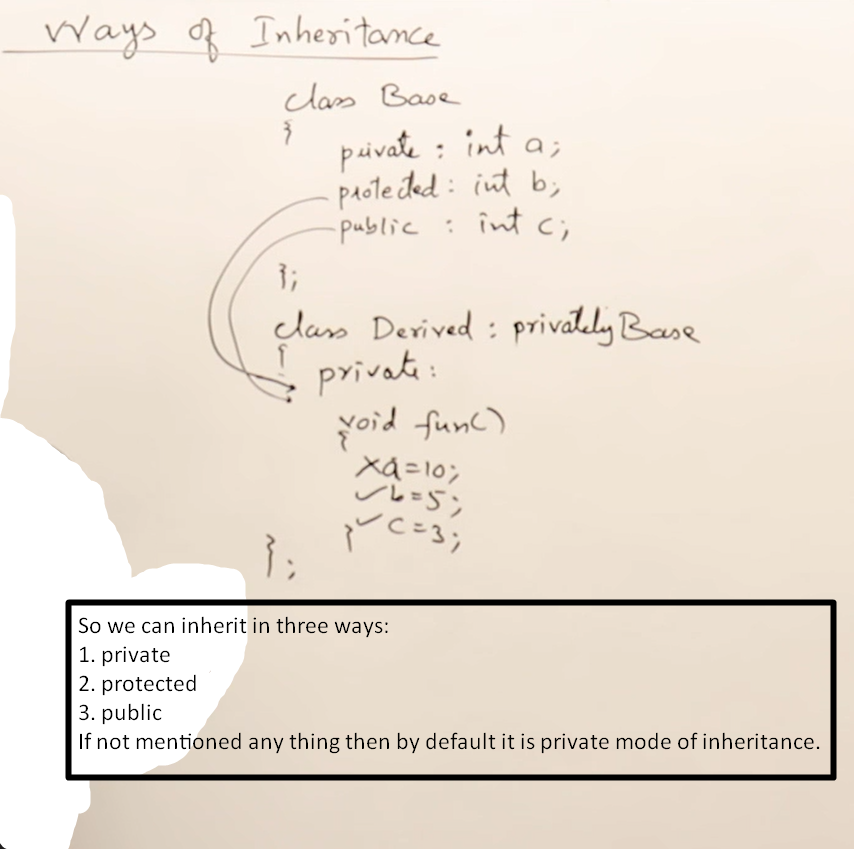 Ways of Inheritance
class Base
{
private : int a;
protected : int b;
public : int c;
};
class Derived : privately Base
{
private :
void fun()
{
×a=10;
✓b=5;
} ✓c=3;
};
So we can inherit in three ways:
1. private
2. protected
3. public
If not mentioned any thing then by default it is private mode of inheritance.